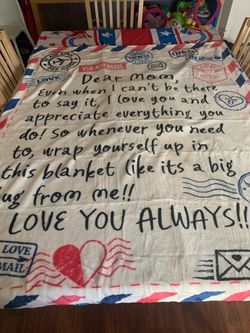 VIA AIR MAIL
LOVE
Dear Mom,
Even when I can't be there
to say it, I love you and
appreciate everything you
do! So whenever you need
to, wrap yourself up in
this blanket like its a big
ug from me!!
LOVE YOU ALWAYS!!
LOVE
MAIL